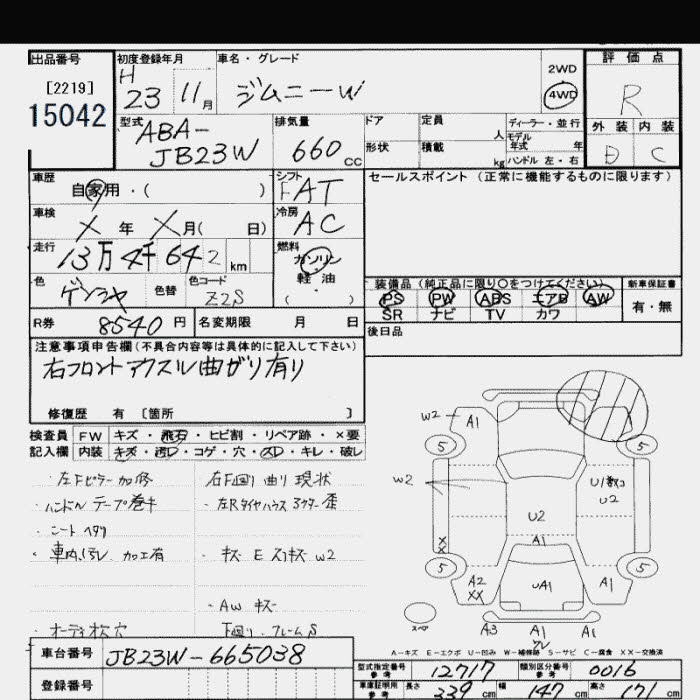 出品番号
[2219]
15042
初度登録年月
H
23 11月
車名・グレード
ジムニーW
2WD
4WD
評価点
R
外装 内装
D C
型式
ABA-
JB23W
排気量
660 CC
ドア
定員
人
ディーラー・並行
モデル
年式 年
形状
積載
kg
ハンドル 左・右
車歴
自家用・( )
シフト
FAT
セールスポイント (正常に機能するものに限ります)
車検
X 年 X月( 日)
冷房
AC
走行
13万4千642 km
燃料
ガソリン
・
軽油
( )
色
色替
色コード
Z2S
装備品(純正品に限り○をつけてください)
PS PW ABS エアB AW
SR ナビ TV カワ
新車保証書
有・無
R券 8540 円
名変期限 月 日
後日品
注意事項申告欄(不具合内容等は具体的に記入して下さい)
右フロントアクスル曲がり有り
修復歴 有 [箇所 ]
検査員
記入欄
FW キズ・飛石・ヒビ割・リペア跡・×要
内装 キズ・汚D・コゲ・穴・スD・キレ・破レ
・左Fピラー加修
・ハンドル テープ巻キ
・シートヘタリ
・車内汚レ 加工有
・オーディオ欠 穴
右F回り曲り 現状
・左Rタイヤハウス アウター歪
・キズ E スリキズ W2
・AW キズ
下回り、フレームS
W2
A1
5
5
W2
U1数コ
U2
U2
A1
XX
5
5
A2
XX
UA1
A1
スペア
A3 A1 A1
ワレ
A-キズ E-エクボ U-凹み W-補修跡 S-サビ C-腐食 XX-交換済
車台番号 JB23W-665038
登録番号
型式指定番号
参考
12717
類別区分番号
参考
0016
車庫証明用
参考
長さ 339 cm 幅 147 cm 高さ 171 cm